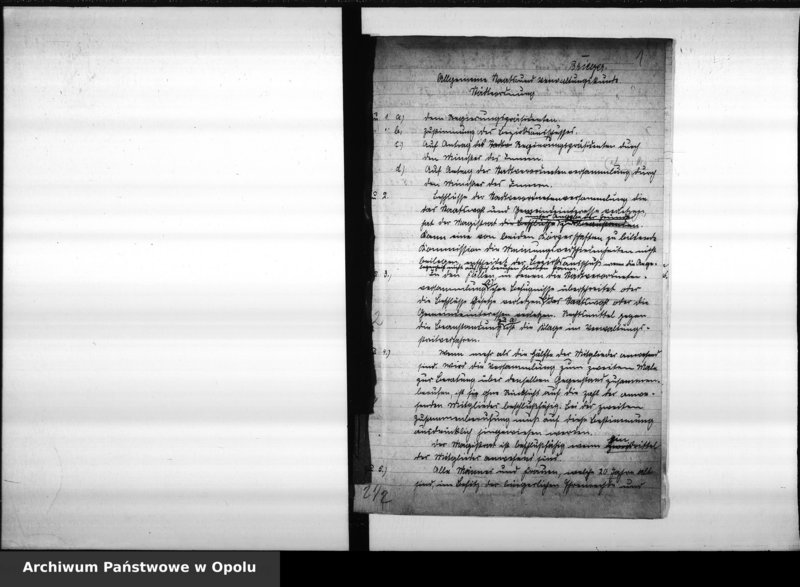 Brieger.
1
Allgemeine Staats und Verwaltungskunde.
Städteordnung
1 a) dem Regierungspräsidenten.
b) Zustimmung des Bezirksausschusses.
c) Auf Antrag des Regierungspräsidenten durch
den Minister des Innern.
d) Auf Antrag der Stadtverordnetenversammlung durch
den Minister des Innern.
2. Beschlüsse der Stadtverordnetenversammlung die
das Staatswohl und Gemeindeinteresse verletzen,
hat der Magistrat
Kann eine von beiden Körperschaften zu bildende
Kommission die Meinungsverschiedenheiten nicht
beilegen, entscheidet der Bezirksausschuß, wenn die Ange-
legenheit nicht
3.) In den Fällen, in denen die Stadtverordneten-
versammlung ihre Befugnisse überschreitet oder
die Beschlüsse Gesetze verletzen, das Staatswohl oder die
Gemeindeinteressen verletzen. Rechtsmittel gegen
die Beanstandung ist die Klage im Verwaltungs-
streitverfahren.
4.) Wenn mehr als die Hälfte der Mitglieder anwesend
sind. Wird die Versammlung zum zweiten Male
zur Beratung über denselben Gegenstand zusammen-
berufen, ist sie ohne Rücksicht auf die Zahl der anwe-
senden Mitglieder beschlußfähig. Bei der zweiten
Zusammenberufung muß auf diese Bestimmung
ausdrücklich hingewiesen werden.
Der Magistrat ist beschlußfähig wenn
der Mitglieder anwesend sind.
5.) Alle Männer und Frauen, welche 20 Jahre alt
sind, im Besitz der bürgerlichen Ehrenrechte und
Archiwum Państwowe w Opolu